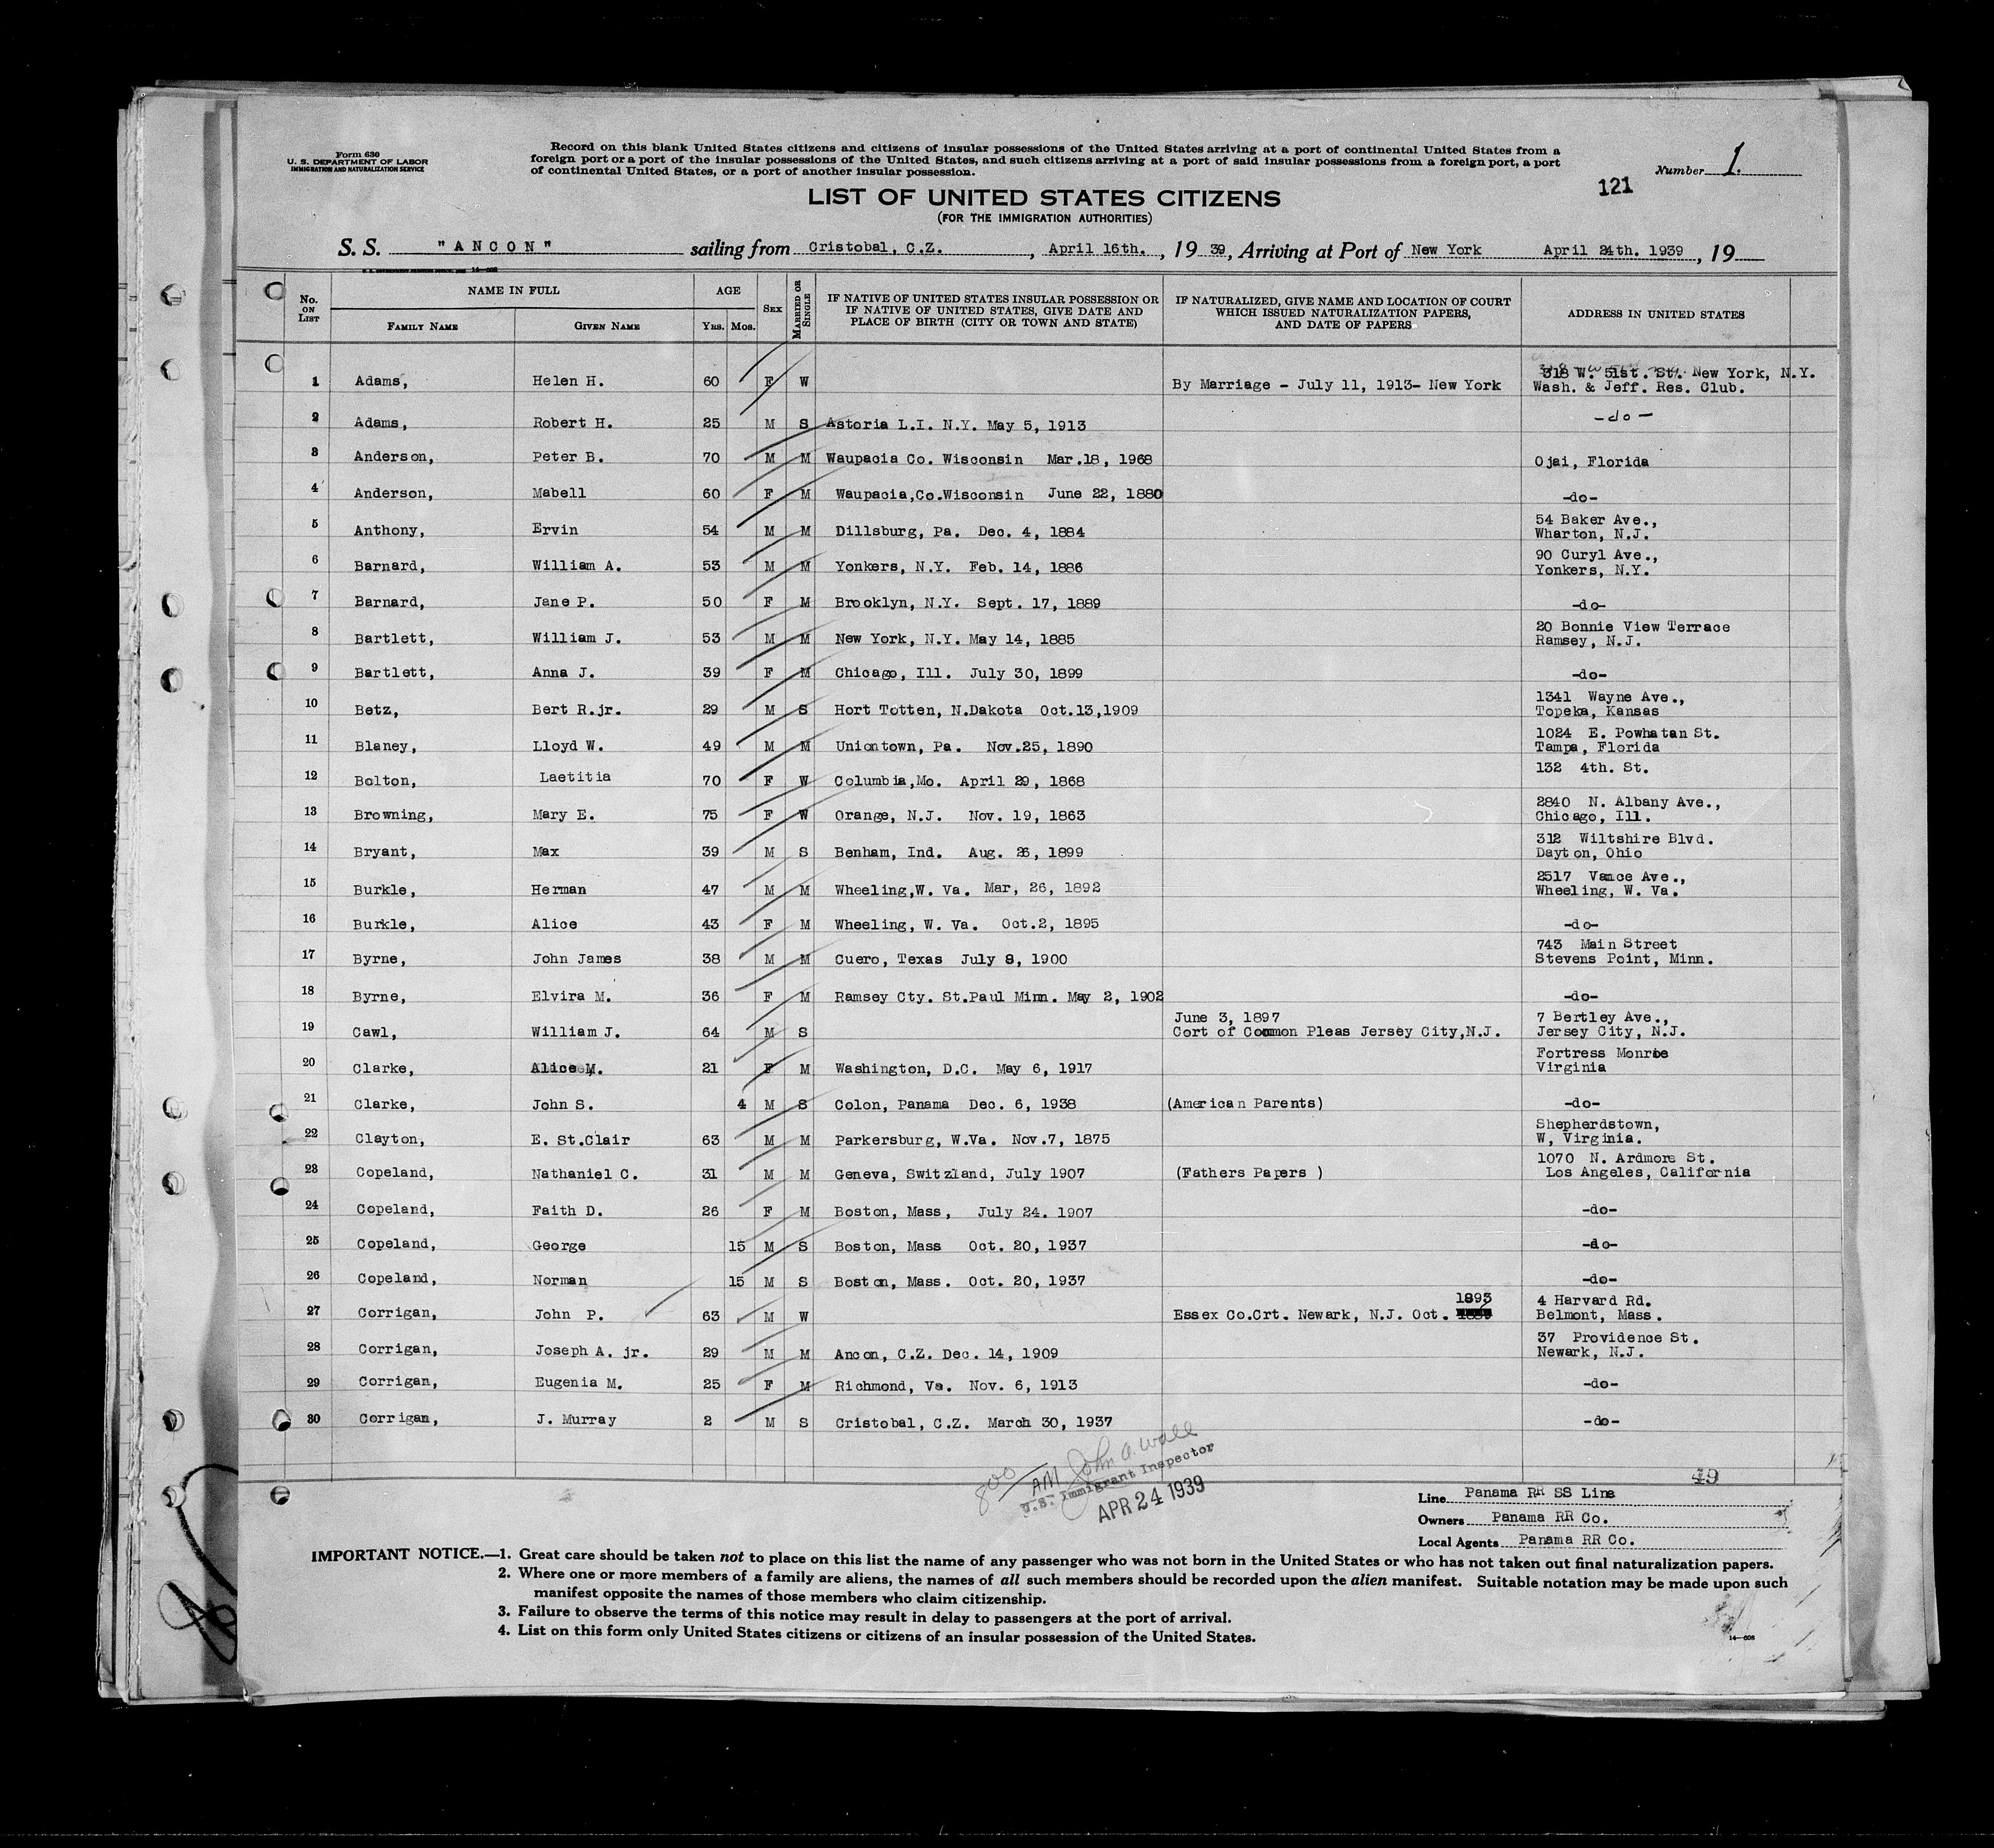 Form 630
U. S. DEPARTMENT OF LABOR
IMMIGRATION AND NATURALIZATION SERVICE
Record on this blank United States citizens and citizens of insular possessions of the United States arriving at a port of continental United States from a
foreign port or a port of the insular possessions of the United States, and such citizens arriving at a port of said insular possessions from a foreign port, a port
of continental United States, or a port of another insular possession.
Number 1.
121
LIST OF UNITED STATES CITIZENS
(FOR THE IMMIGRATION AUTHORITIES)
S. S. "ANCON" sailing from Cristobal, C.Z. , April 16th. , 19 39, Arriving at Port of New York April 24th. 1939 , 19
14-608
No. ON LIST NAME IN FULL FAMILY NAME GIVEN NAME AGE YRS. MOS. SEX MARRIED OR SINGLE IF NATIVE OF UNITED STATES INSULAR POSSESSION OR IF NATIVE OF UNITED STATES, GIVE DATE AND PLACE OF BIRTH (CITY OR TOWN AND STATE) IF NATURALIZED, GIVE NAME AND LOCATION OF COURT WHICH ISSUED NATURALIZATION PAPERS, AND DATE OF PAPERS ADDRESS IN UNITED STATES
1 Adams, Helen H. 60 F W By Marriage - July 11, 1913- New York 318 W. 51st. St. New York, N.Y.
Wash. & Jeff. Res. Club.
2 Adams, Robert H. 25 M S Astoria L.I. N.Y. May 5, 1913 -do-
3 Anderson, Peter B. 70 M M Waupacia Co. Wisconsin Mar.18, 1968 Ojai, Florida
4 Anderson, Mabell 60 F M Waupacia,Co.Wisconsin June 22, 1880 -do-
5 Anthony, Ervin 54 M M Dillsburg, Pa. Dec. 4, 1884 54 Baker Ave.,
Wharton, N.J.
6 Barnard, William A. 53 M M Yonkers, N.Y. Feb. 14, 1886 90 Curyl Ave.,
Yonkers, N.Y.
7 Barnard, Jane P. 50 F M Brooklyn, N.Y. Sept. 17, 1889 -do-
8 Bartlett, William J. 53 M M New York, N.Y. May 14, 1885 20 Bonnie View Terrace
Ramsey, N.J.
9 Bartlett, Anna J. 39 F M Chicago, Ill. July 30, 1899 -do-
10 Betz, Bert R.jr. 29 M S Hort Totten, N.Dakota Oct.13,1909 1341 Wayne Ave.,
Topeka, Kansas
11 Blaney, Lloyd W. 49 M M Uniontown, Pa. Nov.25, 1890 1024 E. Powhatan St.
Tampa, Florida
12 Bolton, Laetitia 70 F W Columbia,Mo. April 29, 1868 132 4th. St.
13 Browning, Mary E. 75 F W Orange, N.J. Nov. 19, 1863 2840 N. Albany Ave.,
Chicago, Ill.
14 Bryant, Max 39 M S Benham, Ind. Aug. 26, 1899 312 Wiltshire Blvd.
Dayton, Ohio
15 Burkle, Herman 47 M M Wheeling,W. Va. Mar, 26, 1892 2517 Vance Ave.,
Wheeling, W. Va.
16 Burkle, Alice 43 F M Wheeling, W. Va. Oct.2, 1895 -do-
17 Byrne, John James 38 M M Cuero, Texas July 8, 1900 743 Main Street
Stevens Point, Minn.
18 Byrne, Elvira M. 36 F M Ramsey Cty. St.Paul Minn. May 2, 1902 -do-
19 Cawl, William J. 64 M S June 3, 1897
Cort of Common Pleas Jersey City,N.J. 7 Bertley Ave.,
Jersey City, N.J.
20 Clarke, Alice M. 21 F M Washington, D.C. May 6, 1917 Fortress Monroe
Virginia
21 Clarke, John S. 4 M S Colon, Panama Dec. 6, 1938 (American Parents) -do-
22 Clayton, E. St.Clair 63 M M Parkersburg, W.Va. Nov.7, 1875 Shepherdstown,
W, Virginia.
23 Copeland, Nathaniel C. 31 M M Geneva, Switzland, July 1907 (Fathers Papers ) 1070 N. Ardmore St.
Los Angeles, California
24 Copeland, Faith D. 26 F M Boston, Mass, July 24. 1907 -do-
25 Copeland, George 15 M S Boston, Mass Oct. 20, 1937 -do-
26 Copeland, Norman 15 M S Boston, Mass. Oct. 20, 1937 -do-
27 Corrigan, John P. 63 M W Essex Co.Crt. Newark, N.J. Oct. 1893 4 Harvard Rd.
Belmont, Mass.
28 Corrigan, Joseph A. jr. 29 M M Ancon, C.Z. Dec. 14, 1909 37 Providence St.
Newark, N.J.
29 Corrigan, Eugenia M. 25 F M Richmond, Va. Nov. 6, 1913 -do-
30 Corrigan, J. Murray 2 M S Cristobal, C.Z. March 30, 1937 -do-
800 AM John A. Wall
U.S. Immigrant Inspector
APR 24 1939
49
Line Panama RR SS Line
Owners Panama RR Co.
Local Agents Panama RR Co.
IMPORTANT NOTICE.—1. Great care should be taken not to place on this list the name of any passenger who was not born in the United States or who has not taken out final naturalization papers.
2. Where one or more members of a family are aliens, the names of all such members should be recorded upon the alien manifest. Suitable notation may be made upon such
manifest opposite the names of those members who claim citizenship.
3. Failure to observe the terms of this notice may result in delay to passengers at the port of arrival.
4. List on this form only United States citizens or citizens of an insular possession of the United States.
14-608